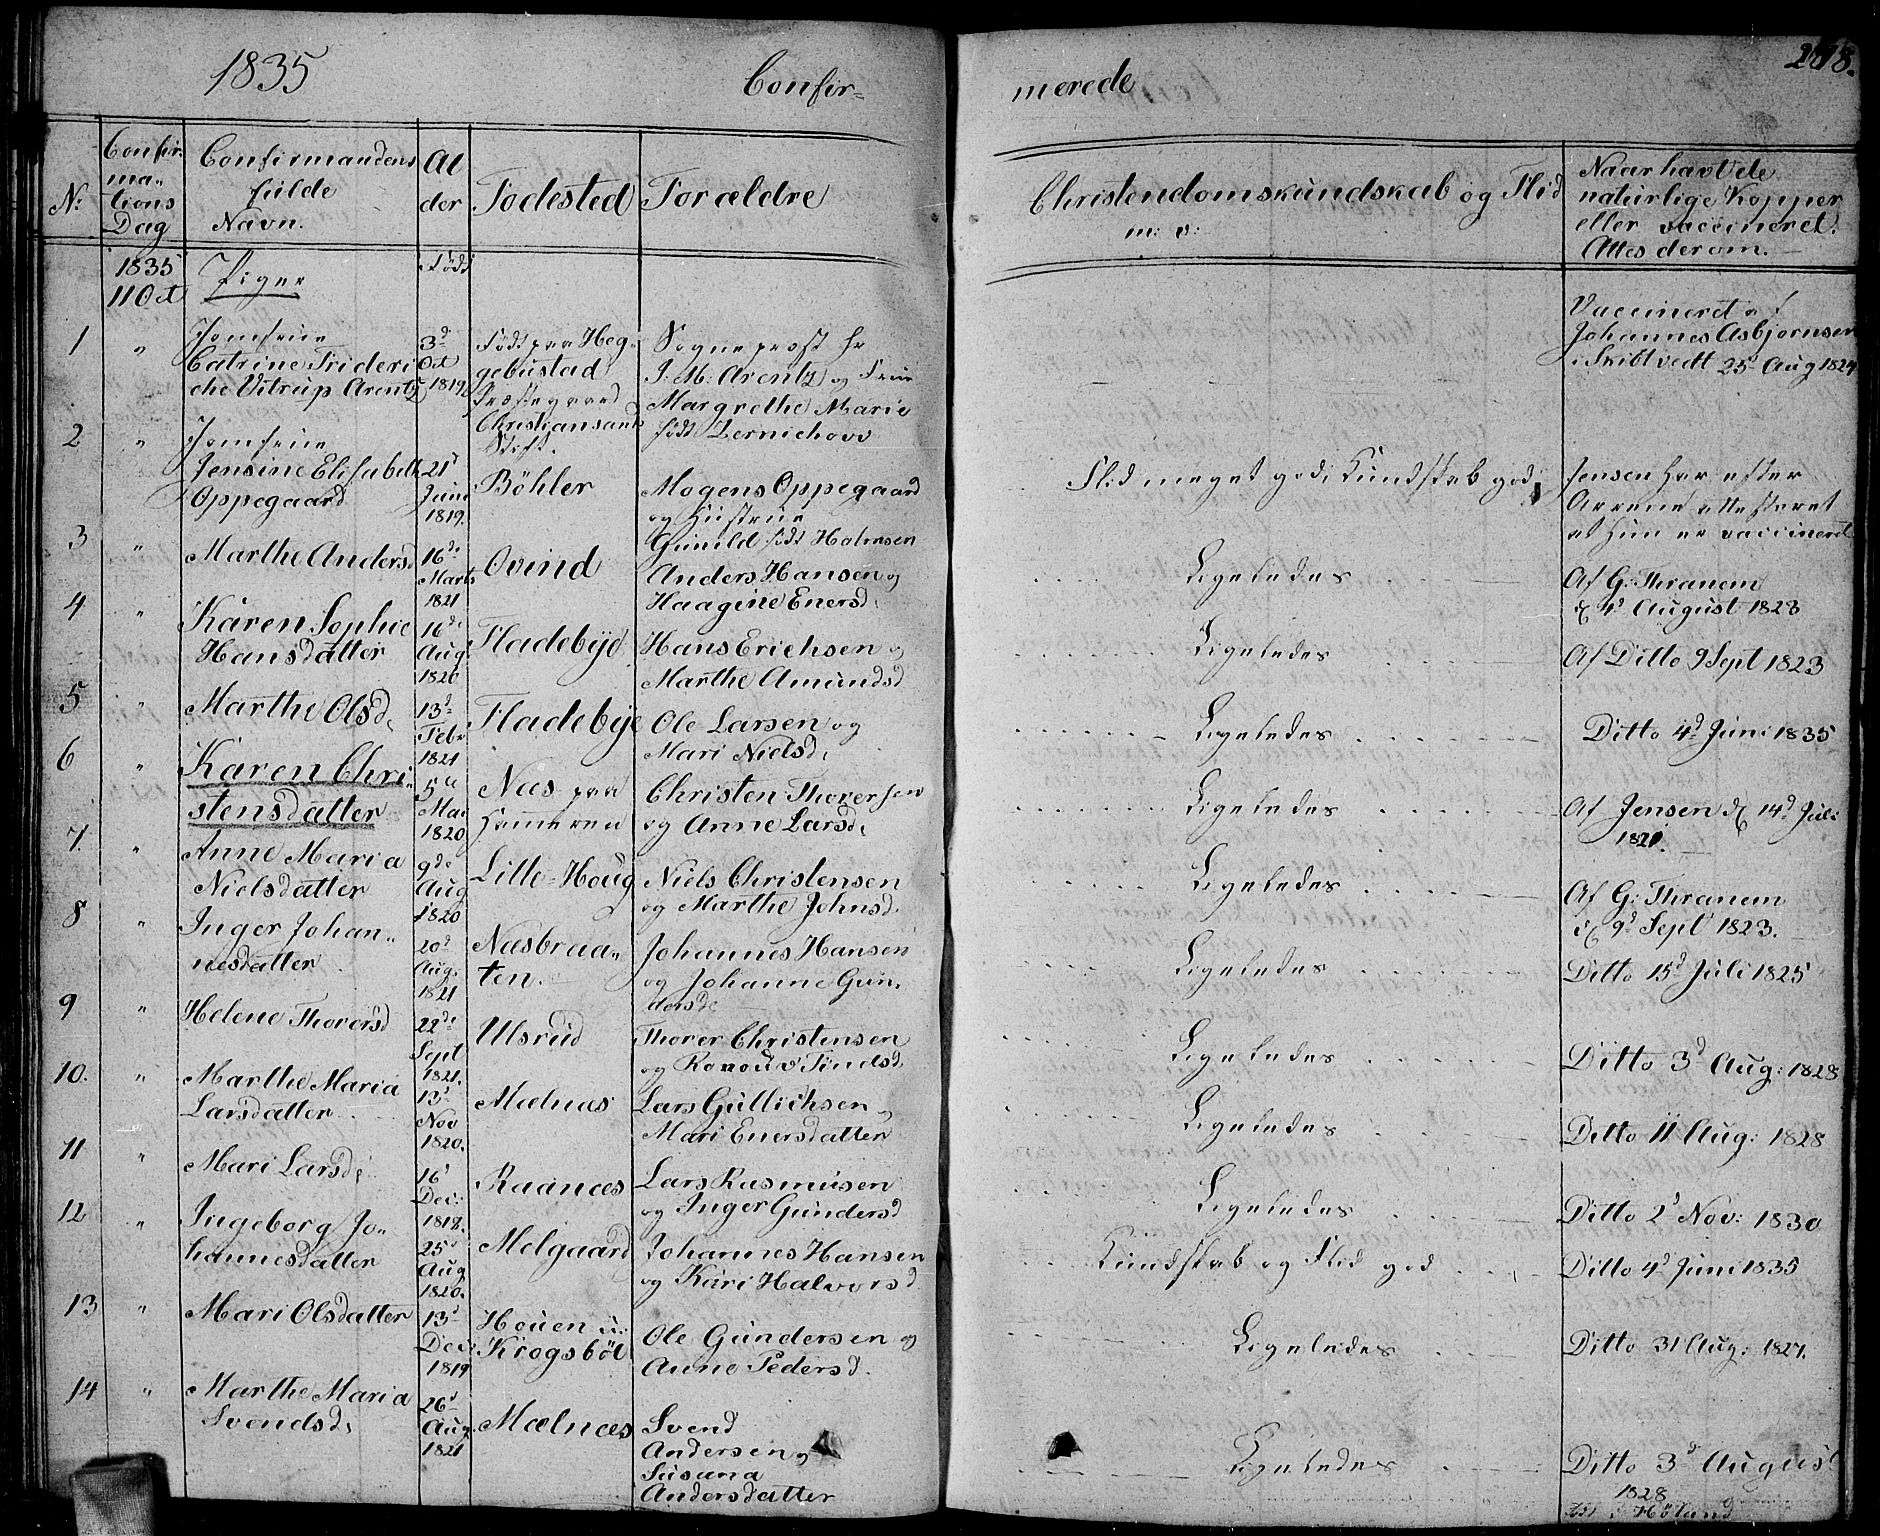 1835
Confir=
merede
278.
N:
Confir:
ma-
tions
Dag
Confirmandens
fulde
Navn.
Al
der
Födested
Forældre
Christendomskundskab og Flid
m: v:
Naar havt de
naturlige Kopper
eller vaccineret.
Attes derom.
1835
11 Oct
Piger
Födt
1
"
Jomfrue
Catrine Frideri
che Vitrup Arentz
3d
Oct
1819
Födt paa Heg-
gebustad
Præstegaard
Christiansands
Stift.
Sogneprost Hr
J: M: Arentz og Frue
Margrethe Marie
födt
Vaccineret af
Johannes Asbjornsen
i Skibtvedt 25 Aug 1824
2
"
Jomfrue
Jensine Elisabeth
Oppegaard
21
Juni
1819.
Böhler
Mogens Oppegaard
og Hustrue
Gunild födt Halvorsen
Flid meget god, Kundskab god,
Jensen har efter
attesteret
at hun er vaccineret
3
"
Marthe Andersd
16de
Marts
1821
Ovind
Anders Hansen og
Haagine Enersd:
Ligeledes
Af G: Thranem
d 4d August 1823
4
"
Karen Sophie
Hansdatter
16de
Aug:
1820
Fladebÿe
Hans Erichsen og
Marthe Amundsd
Ligeledes
Af Ditto 9 Sept 1823
5
"
Marthe Olsd,
13d
Febr
1821
Fladebÿe
Ole Larsen og
Mari Nielsd:
Ligeledes
Ditto 4d Juni 1835
6
"
Karen Chri-
stensdatter
5te
Mai
1820
Næs paa
Hemeren
Christen Thorersen
og Anne Larsd:
Ligeledes
Af Jensen d 14d Juli
1821.
7.
"
Anne Maria
Nielsdatter
9de
Aug
1820
Lille=Houg
Niels Christensen
og Marthe Johnsd.
Ligeledes
Af G: Thranem
d 9d Sept 1823.
8
"
Inger Johan-
nesdatter
20d
Aug.
1821
Næsbraa-
ten.
Johannes Hansen
og Johanne Gun-
dersd:
Ligeledes
Ditto 15d Juli 1825
9
"
Helene Thorersd
22de
Sept
1821.
Ulsrud
Thorer Christensen
og
Ligeledes
Ditto 3d Aug: 1828
10.
"
Marthe Maria
Larsdatter
13d
Nov
1820.
Mælnæs
Lars Gullichsen
Mari Enersdatter
Ligeledes
Ditto 11 Aug: 1828
11
"
Mari Larsd:
16
Dec:
1818.
Raanæs
Lars Rasmusen
og Inger Gundersd
Ligeledes
Ditto 2d Nov: 1830
12
"
Ingeborg Jo-
hannesdatter
25d
Aug
1820.
Melgaard
Johannes Hansen
og Kari Halvorsd
Kundskab og Flid god
Ditto 4d Juni 1835
13
"
Mari Olsdatter
13d
Dec:
1819
Houen u:
Krogsböl
Ole Gundersen og
Anne Pedersd.
Ligeledes
Ditto 31 Aug: 1827.
14
"
Marthe Maria
Svendsd:
26d
Aug.
1821
Mælnæs
Svend
Andersen og
Susana
Andersdatter
Ligeledes
Ditto 3d August
1828
i Höland